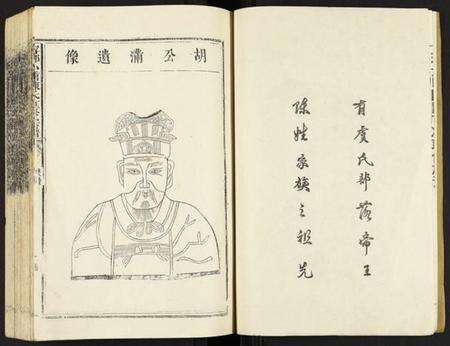 有虞氏部落帝王
陈姓家族之祖先
胡公满遺像